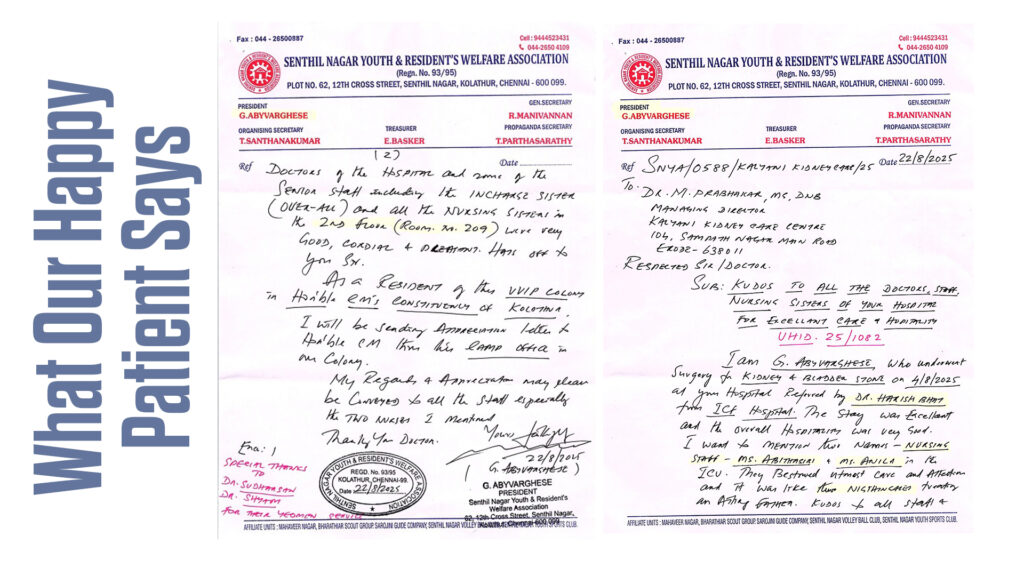 What Our Happy
Patient Says
Fax : 044 - 26500887
Cell : 9444523431
044-2650 4109
SENTHIL NAGAR YOUTH & RESIDENT'S WELFARE ASSOCIATION
(Regn. No. 93/95)
PLOT NO. 62, 12TH CROSS STREET, SENTHIL NAGAR, KOLATHUR, CHENNAI - 600 099.
PRESIDENT
G.ABYVARGHESE
GEN.SECRETARY
R.MANIVANNAN
ORGANISING SECRETARY
T.SANTHANAKUMAR
TREASURER
E.BASKER
PROPAGANDA SECRETARY
T.PARTHASARATHY
(2)
Ref
Date
Doctors of the Hospital and some of the
Senior Staff including the INCHARGE SISTER
(OVER-ALL) and all the NURSING SISTERS in
the 2ND Floor (Room. No. 209) were very
Good, cordial & pleasant. Hats off to
you Sir.
As a Resident of this VVIP Colony
in Hon'ble CM's Constituency of
I will be sending Appreciation letter to
Hon'ble CM thro his CAMP OFFICE in
our Colony.
My Regards & Appreciation may please
be Conveyed to all the Staff especially
the TWO NURSES I mentioned.
Thanking You Doctor.
Yours
22/8/2025
(G. ABYVARGHESE)
Enc: 1
SPECIAL THANKS
TO
DR. SUDHARSAN
DR. SHYAM
FOR THEIR YEOMEN SERVICE
SENTHIL NAGAR YOUTH & RESIDENT'S WELFARE ASSOCIATION
REGD. No. 93/95
KOLATHUR, CHENNAI-99.
Date 22/8/2025
G. ABYVARGHESE
PRESIDENT
Senthil Nagar Youth & Resident's
Welfare Association
62, 12th Cross Street, Senthil Nagar,
Kolathur, Chennai 600 099
AFFILIATE UNITS : MAHAVEER NAGAR, BHARATHIAR SCOUT GROUP, SAROJINI GUIDE COMPANY, SENTHIL NAGAR VOLLEY BALL CLUB, SENTHIL NAGAR YOUTH SPORTS CLUB.
Fax : 044 - 26500887
Cell : 9444523431
044-2650 4109
SENTHIL NAGAR YOUTH & RESIDENT'S WELFARE ASSOCIATION
(Regn. No. 93/95)
PLOT NO. 62, 12TH CROSS STREET, SENTHIL NAGAR, KOLATHUR, CHENNAI - 600 099.
PRESIDENT
G.ABYVARGHESE
GEN.SECRETARY
R.MANIVANNAN
ORGANISING SECRETARY
T.SANTHANAKUMAR
TREASURER
E.BASKER
PROPAGANDA SECRETARY
T.PARTHASARATHY
Ref SNYA/0588/KALYANI KIDNEY CARE/25 Date 22/8/2025
To.
DR. M. PRABHAKAR, MS, DNB
MANAGING DIRECTOR
KALYANI KIDNEY CARE CENTRE
104, SAMPATH NAGAR MAIN ROAD
ERODE - 638011
RESPECTED SIR/DOCTOR.
SUB: KUDOS TO ALL THE DOCTORS, STAFF,
NURSING SISTERS OF YOUR HOSPITAL
FOR EXCELLANT CARE & HOSPITALITY
UHID. 25/1082
I am G. ABYVARGHESE, who underwent
Surgery for KIDNEY & BLADDER STONE on 4/8/2025
at your Hospital Referred by DR. HARISH BHAT
from ICF Hospital. The Stay was Excellant
and the overall Hospitality was very Good.
I want to MENTION two NAMES - NURSING
STAFF - MS. & MS. ANILA in the
ICU. They Bestowed utmost care and Affection
and it was like two treating
an Ailing FATHER. KUDOS to all staff &
AFFILIATE UNITS : MAHAVEER NAGAR, BHARATHIAR SCOUT GROUP, SAROJINI GUIDE COMPANY, SENTHIL NAGAR VOLLEY BALL CLUB, SENTHIL NAGAR YOUTH SPORTS CLUB.